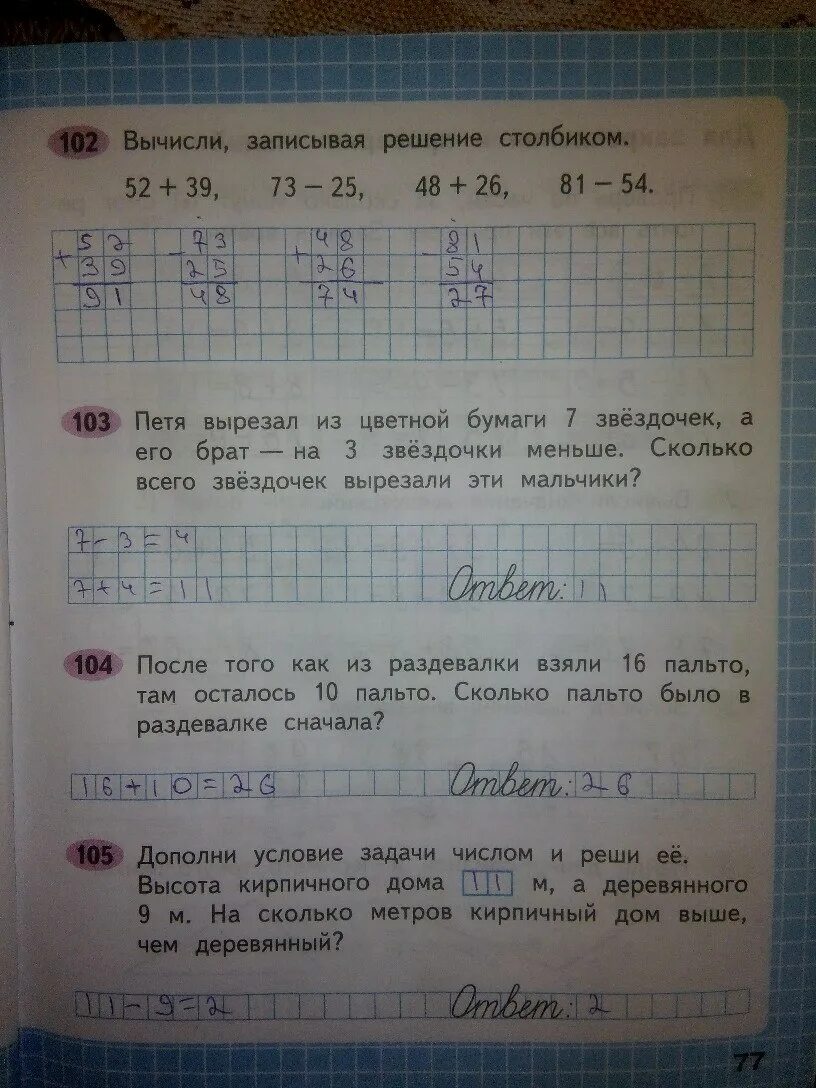 102 Вычисли, записывая решение столбиком.
52 + 39, 73 − 25, 48 + 26, 81 − 54.
52 73 48 81
+ 39 − 25 + 26 − 54
91 48 74 27
103 Петя вырезал из цветной бумаги 7 звёздочек, а
его брат — на 3 звёздочки меньше. Сколько
всего звёздочек вырезали эти мальчики?
7 − 3 = 4
7 + 4 = 11 Ответ: 11
104 После того как из раздевалки взяли 16 пальто,
там осталось 10 пальто. Сколько пальто было в
раздевалке сначала?
16 + 10 = 26 Ответ: 26
105 Дополни условие задачи числом и реши её.
Высота кирпичного дома 11 м, а деревянного
9 м. На сколько метров кирпичный дом выше,
чем деревянный?
11 − 9 = 2 Ответ: 2
77